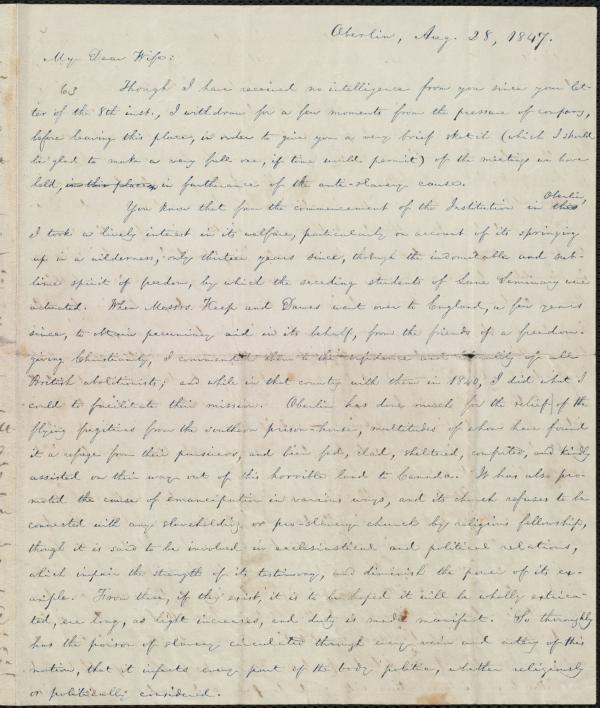 Oberlin, Aug. 28, 1847.
My Dear Wife:
Though I have received no intelligence from you since your let-
ter of the 8th inst., I withdraw for a few moments from the pressure of company,
before leaving this place, in order to give you a very brief sketch (which I should
be glad to make a very full one, if time would permit) of the meetings we have
held, in this place, in furtherance of the anti-slavery cause.
You know that from the commencement of the Institution in this Oberlin,
I took a lively interest in its welfare, particularly on account of its springing
up in a wilderness, only thirteen years since, through the indomitable and sub-
lime spirit of freedom, by which the seceding students of Lane Seminary were
actuated. When Messrs. Keep and Dawes went over to England, a few years
since, to obtain pecuniary aid in its behalf, from the friends of a freedom-
giving Christianity, I commended them to the confidence and liberality of all
British abolitionists; and while in that country with them in 1840, I did what I
could to facilitate their mission. Oberlin has done much for the relief of the
flying fugitives from the southern prison-house, multitudes of whom have found
it a refuge from their pursuers, and been fed, clad, sheltered, comforted, and kindly
assisted on their way out of this horrible land to Canada. It has also pro-
moted the cause of emancipation in various ways, and its church refuses to be
connected with any slaveholding or pro-slavery church by religious fellowship,
though it is said to be involved in ecclesiastical and political relations,
which impair the strength of its testimony, and diminish the power of its ex-
ample. From these, if they exist, it is to be hoped it will be wholly extrica-
ted, ere long, as light increases, and duty is made manifest. So thoroughly
has the poison of slavery circulated through every vein and artery of this
nation, that it infects every part of the body politic, whether religiously
or politically considered.